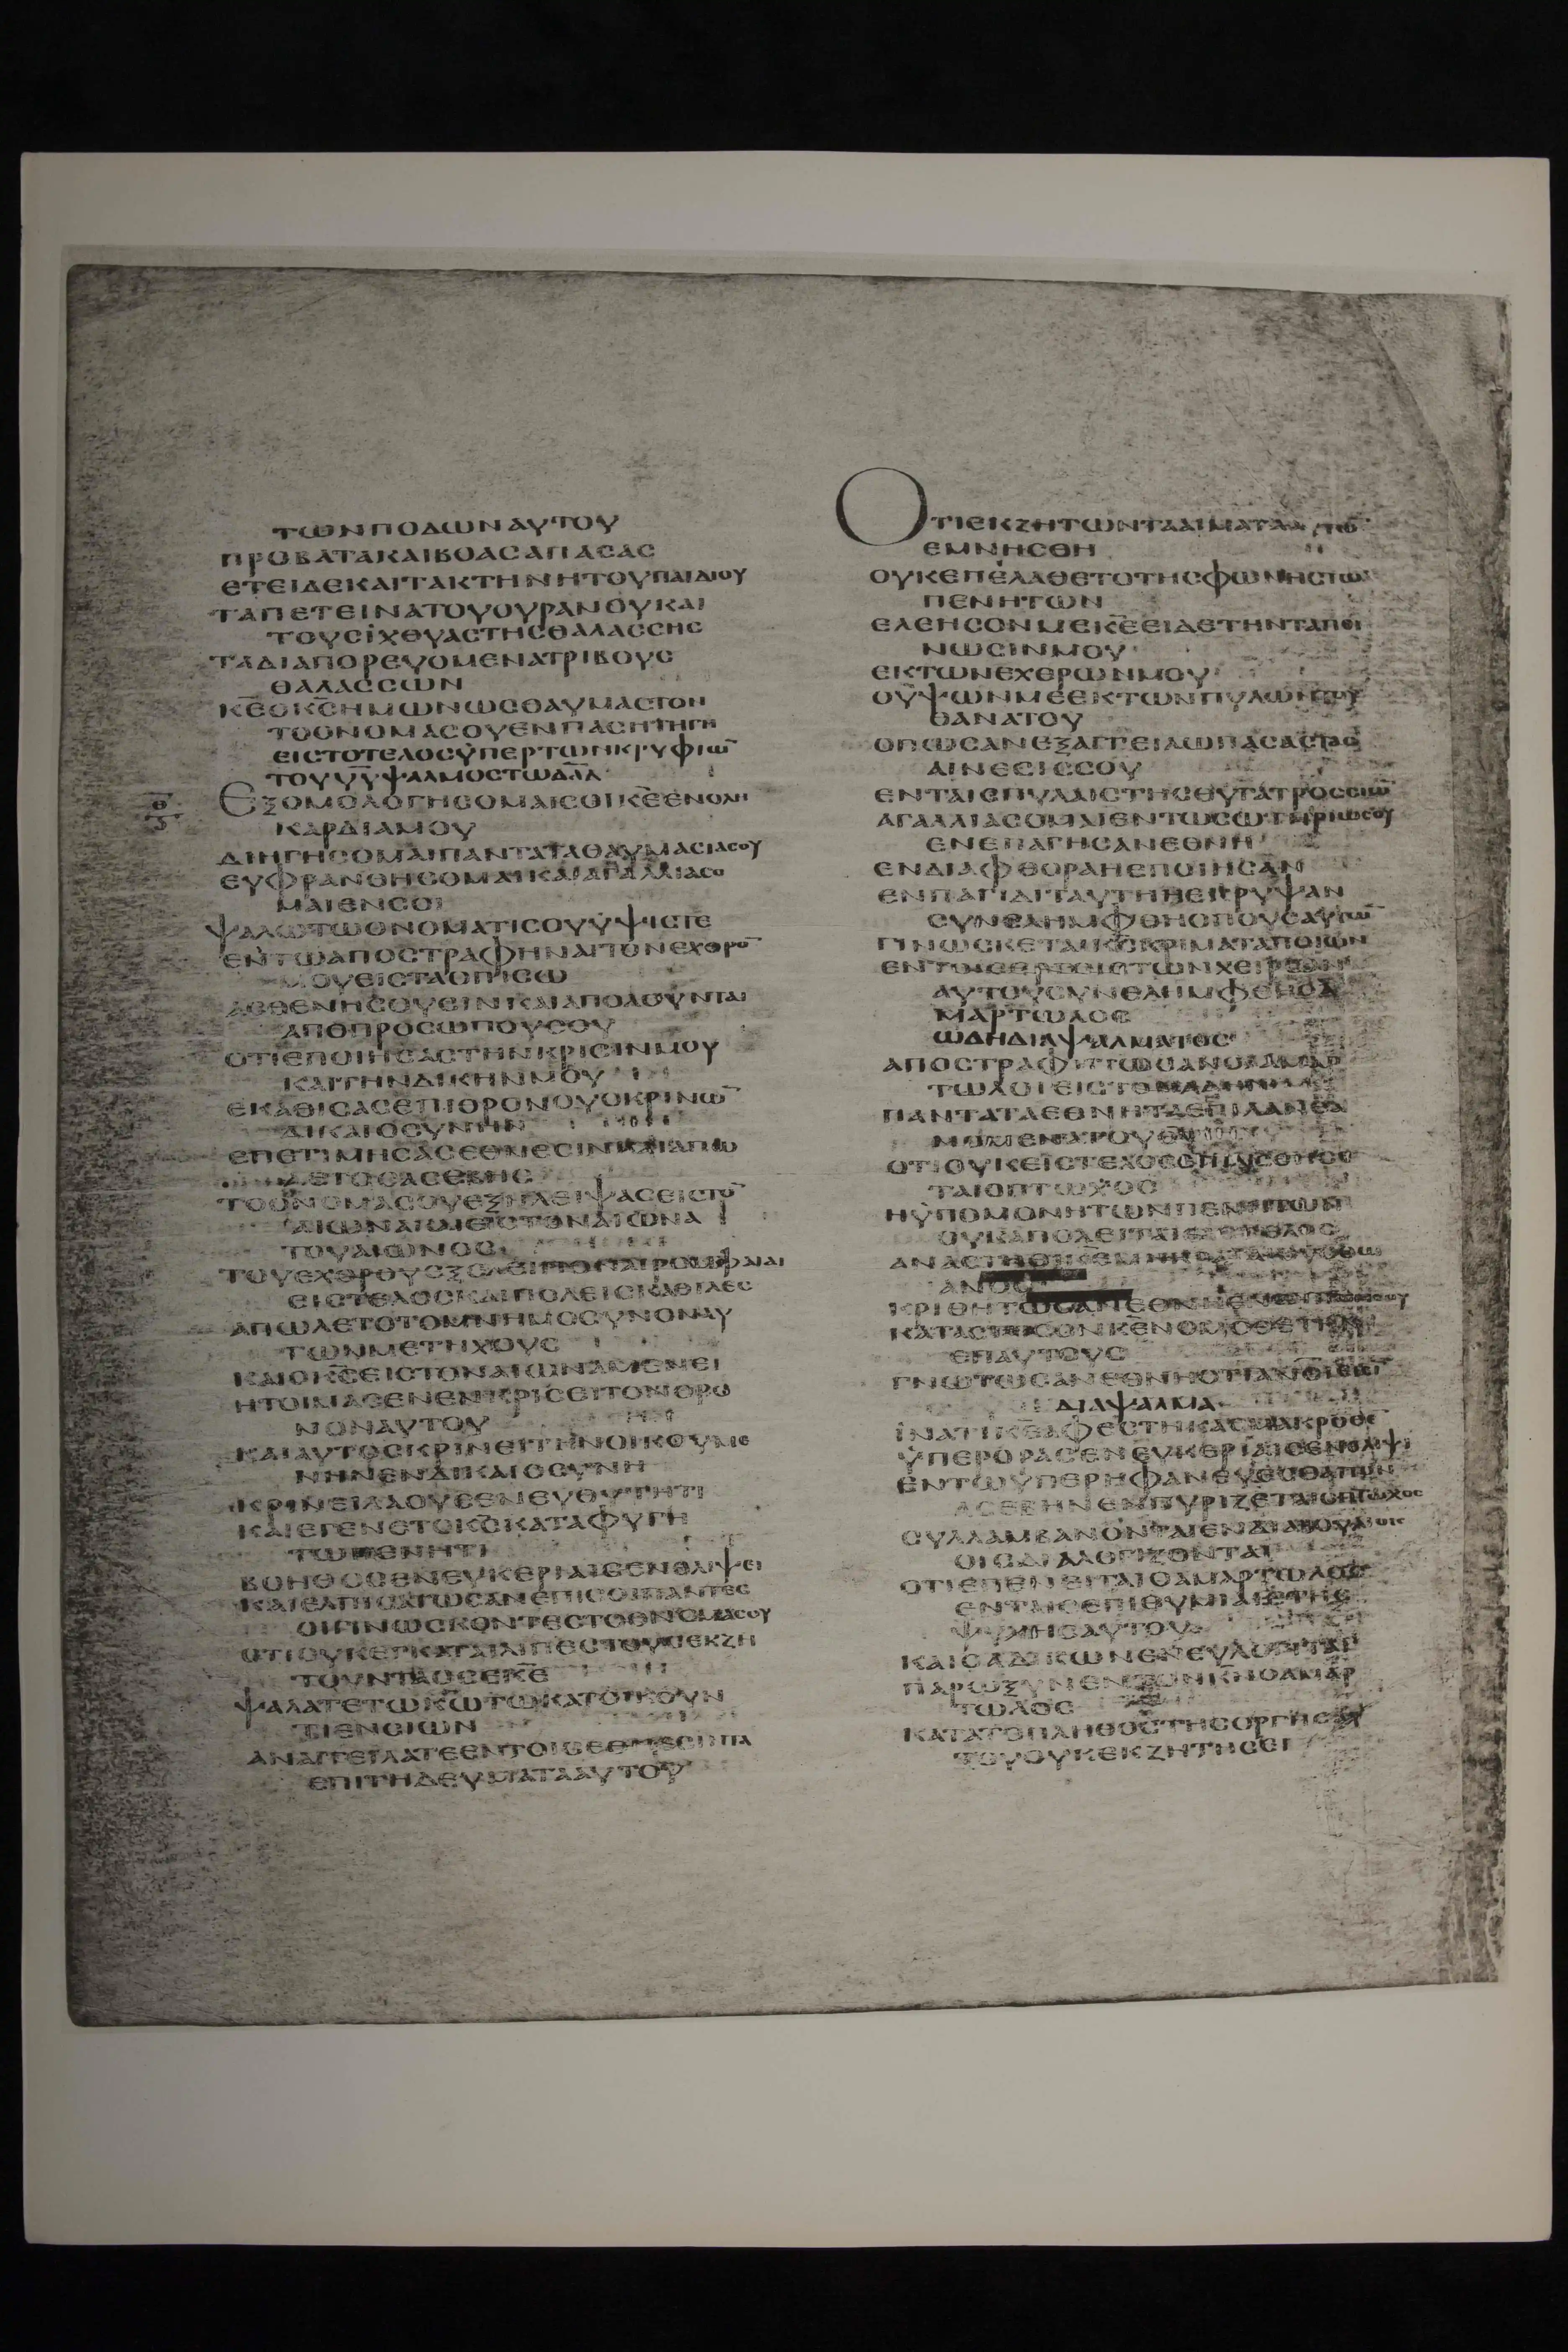 ΤΩΝΠΟΔΩΝΑΥΤΟΥ
ΠΡΟΒΑΤΑΚΑΙΒΟΑΣΑΠΑΣΑΣ
ΕΤΕΙΔΕΚΑΙΤΑΚΤΗΝΗΤΟΥΠΑΙΔΙΟΥ
ΤΑΠΕΤΕΙΝΑΤΟΥΟΥΡΑΝΟΥΚΑΙ
ΤΟΥΣΪΧΘΥΑΣΤΗΣΘΑΛΑΣΣΗΣ
ΤΑΔΙΑΠΟΡΕΥΟΜΕΝΑΤΡΙΒΟΥΣ
ΘΑΛΑΣΣΩΝ
Κ̅Ε̅ΟΚ̅Σ̅ΗΜΩΝΩΣΘΑΥΜΑΣΤΟΝ
ΤΟΟΝΟΜΑΣΟΥΕΝΠΑΣΗΤΗΓΗ
ΕΙΣΤΟΤΕΛΟΣΫΠΕΡΤΩΝΚΡΥΦΙΩ̅
ΤΟΥΥ̅Υ̅ΨΑΛΜΟΣΤΩΔ̅Α̅Δ̅
Θ̅
ΕΞΟΜΟΛΟΓΗΣΟΜΑΙΣΟΙΚ̅Ε̅ΕΝΟΛΗ
ΚΑΡΔΙΑΜΟΥ
ΔΙΗΓΗΣΟΜΑΙΠΑΝΤΑΤΑΘΑΥΜΑΣΙΑΣΟΥ
ΕΥΦΡΑΝΘΗΣΟΜΑΙΚΑΙΑΓΑΛΛΙΑΣΟ
ΜΑΙΕΝΣΟΙ
ΨΑΛΩΤΩΟΝΟΜΑΤΙΣΟΥΫΨΙΣΤΕ
ΕΝΤΩΑΠΟΣΤΡΑΦΗΝΑΙΤΟΝΕΧΘΡΟ̅
ΜΟΥΕΙΣΤΑΟΠΙΣΩ
ΑΣΘΕΝΗΣΟΥΣΙΝΚΑΙΑΠΟΛΟΥΝΤΑΙ
ΑΠΟΠΡΟΣΩΠΟΥΣΟΥ
ΟΤΙΕΠΟΙΗΣΑΣΤΗΝΚΡΙΣΙΝΜΟΥ
ΚΑΙΤΗΝΔΙΚΗΝΜΟΥ
ΕΚΑΘΙΣΑΣΕΠΙΘΡΟΝΟΥΟΚΡΙΝΩ̅
ΔΙΚΑΙΟΣΥΝΗΝ
ΕΠΕΤΙΜΗΣΑΣΕΘΝΕΣΙΝΚΑΙΑΠΩ
ΛΕΤΟΟΑΣΕΒΗΣ
ΤΟΟΝΟΜΑΣΟΥΕΞΗΛΕΙΨΑΣΕΙΣΤΟ̅
ΑΙΩΝΑΚΑΙΕΙΣΤΟΝΑΙΩΝΑ
ΤΟΥΑΙΩΝΟΣ
ΕΙΣΤΕΛΟΣΚΑΙΠΟΛΕΙΣΚΑΘΙΛΕΣ
ΑΠΩΛΕΤΟΤΟΜΝΗΜΟΣΥΝΟΝΑΥ
ΤΩΝΜΕΤΗΧΟΥΣ
ΚΑΙΟΚ̅Σ̅ΕΙΣΤΟΝΑΙΩΝΑΜΕΝΕΙ
ΗΤΟΙΜΑΣΕΝΕΝΚΡΙΣΕΙΤΟΝΘΡΟ
ΝΟΝΑΥΤΟΥ
ΚΑΙΑΥΤΟΣΚΡΙΝΕΙΤΗΝΟΙΚΟΥΜΕ
ΝΗΝΕΝΔΙΚΑΙΟΣΥΝΗ
ΚΡΙΝΕΙΛΑΟΥΣΕΝΕΥΘΥΤΗΤΙ
ΚΑΙΕΓΕΝΕΤΟΚ̅Σ̅ΚΑΤΑΦΥΓΗ
ΤΩΠΕΝΗΤΙ
ΒΟΗΘΟΣΕΝΕΥΚΕΡΙΑΙΣΕΝΘΛΙΨΕΙ
ΚΑΙΕΛΠΙΣΑΤΩΣΑΝΕΠΙΣΟΙΠΑΝΤΕΣ
ΟΙΓΙΝΩΣΚΟΝΤΕΣΤΟΟΝΟΜΑΣΟΥ
ΟΤΙΟΥΚΕΓΚΑΤΑΙΛΙΠΕΣΤΟΥΣΕΚΖΗ
ΤΟΥΝΤΑΣΣΕΚ̅Ε̅
ΨΑΛΑΤΕΤΩΚ̅Ω̅ΤΩΚΑΤΟΙΚΟΥΝ
ΤΙΕΝΣΙΩΝ
ΑΝΑΓΓΕΙΛΑΤΕΕΝΤΟΙΣΕΘΝΕΣΙΝΤΑ
ΕΠΙΤΗΔΕΥΜΑΤΑΑΥΤΟΥ
ΟΤΙΕΚΖΗΤΩΝΤΑΑΙΜΑΤΑΑΥΤΩ̅
ΕΜΝΗΣΘΗ
ΟΥΚΕΠΕΛΑΘΕΤΟΤΗΣΦΩΝΗΣΤΩ̅
ΠΕΝΗΤΩΝ
ΕΛΕΗΣΟΝΜΕΚ̅Ε̅ΕΙΔΕΤΗΝΤΑΠΙ
ΝΩΣΙΝΜΟΥ
ΕΚΤΩΝΕΧΘΡΩΝΜΟΥ
ΟΥΨΩΝΜΕΕΚΤΩΝΠΥΛΩΝΤΟΥ
ΘΑΝΑΤΟΥ
ΟΠΩΣΑΝΕΞΑΓΓΕΙΛΩΠΑΣΑΣΤΑΣ
ΑΙΝΕΣΙΣΣΟΥ
ΕΝΤΑΙΣΠΥΛΑΙΣΤΗΣΘΥΓΑΤΡΟΣΣΙΩ̅
ΑΓΑΛΛΙΑΣΟΜΑΙΕΝΤΩΣΩΤΗΡΙΩΣΟΥ
ΕΝΕΠΑΓΗΣΑΝΕΘΝΗ
ΕΝΔΙΑΦΘΟΡΑΗΕΠΟΙΗΣΑΝ
ΕΝΠΑΓΙΔΙΤΑΥΤΗΗΕΚΡΥΨΑΝ
ΣΥΝΕΛΗΜΦΘΗΟΠΟΥΣΑΥΤΩ̅
ΓΙΝΩΣΚΕΤΑΙΚ̅Σ̅ΚΡΙΜΑΤΑΠΟΙΩΝ
ΕΝΤΟΙΣΕΡΓΟΙΣΤΩΝΧΕΙΡΩΝ
ΑΥΤΟΥΣΥΝΕΛΗΜΦΘΗΟΑ
ΜΑΡΤΩΛΟΣ
ΩΔΗΔΙΑΨΑΛΜΑΤΟΣ
ΑΠΟΣΤΡΑΦΗΤΩΣΑΝΟΙΑΜΑΡ
ΤΩΛΟΙΕΙΣΤΟΝΑΔΗΝ
ΠΑΝΤΑΤΑΕΘΝΗΤΑΕΠΙΛΑΝΘΑ
ΟΤΙΟΥΚΕΙΣΤΕΛΟΣΕΠΙΛΗΣΘΗΣΕ
ΤΑΙΟΠΤΩΧΟΣ
ΗΫΠΟΜΟΝΗΤΩΝΠΕΝΗΤΩΝ
ΟΥΚΑΠΟΛΕΙΤΑΙΕΙΣΤΕΛΟΣ
ΑΝΟΣ
ΚΑΤΑΣΤΗΣΟΝΚ̅Ε̅ΝΟΜΟΘΕΤΗΝ
ΕΠΑΥΤΟΥΣ
ΓΝΩΤΩΣΑΝΕΘΝΗΟΤΙΑΝΟΙΕΙΣΙ̅
ΔΙΑΨΑΛΜΑ
ΪΝΑΤΙΚ̅Ε̅ΑΦΕΣΤΗΚΑΣΜΑΚΡΟΘΕ̅
ΫΠΕΡΟΡΑΣΕΝΕΥΚΕΡΙΑΙΣΕΝΘΛΙΨΙ
ΕΝΤΩΫΠΕΡΗΦΑΝΕΥΕΣΘΑΙΤΟΝ
ΑΣΕΒΗΝΕΜΠΥΡΙΖΕΤΑΙΟΠΤΩΧΟΣ
ΣΥΛΛΑΜΒΑΝΟΝΤΑΙΕΝΔΙΑΒΟΥΛΙΟΙΣ
ΟΙΣΔΙΑΛΟΓΙΖΟΝΤΑΙ
ΟΤΙΕΠΕΝΕΙΤΑΙΟΑΜΑΡΤΩΛΟΣ
ΕΝΤΑΙΣΕΠΙΘΥΜΙΑΙΣΤΗΣ
ΨΥΧΗΣΑΥΤΟΥ
ΚΑΙΟΑΔΙΚΩΝΕΝΕΥΛΟΓΙΤΑΙ
ΠΑΡΩΞΥΝΕΝΤΟΝΚ̅Ν̅ΟΑΜΑΡ
ΤΩΛΟΣ
ΚΑΤΑΤΟΠΛΗΘΟΣΤΗΣΟΡΓΗΣΑΥ
ΤΟΥΟΥΚΕΚΖΗΤΗΣΕΙ